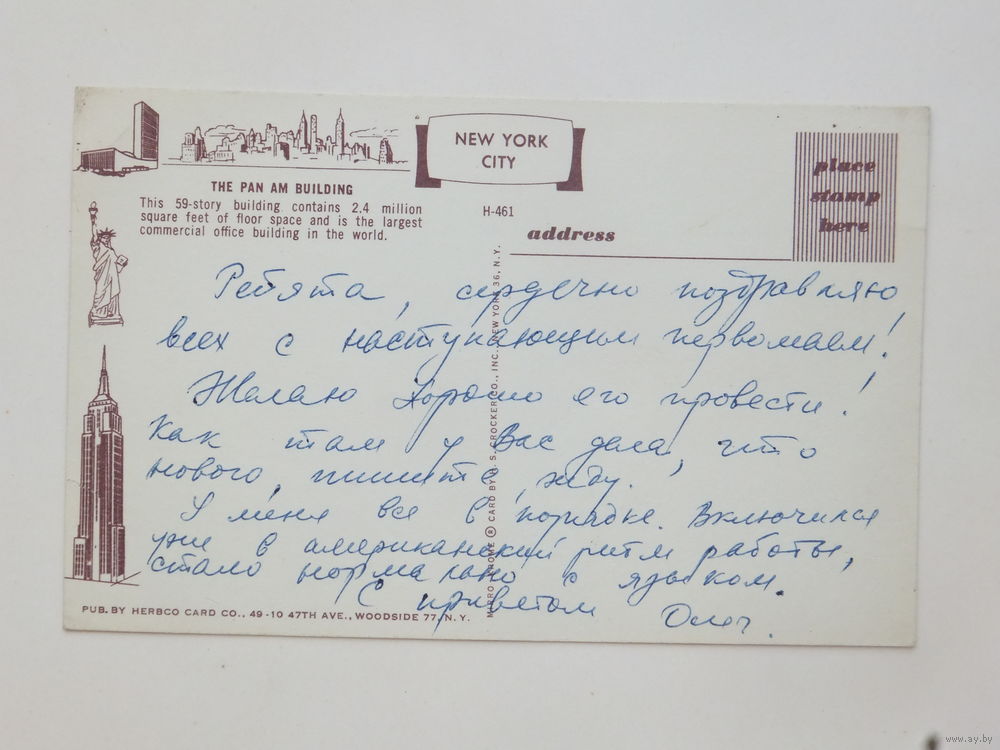 NEW YORK
CITY
place
stamp
here
THE PAN AM BUILDING
This 59-story building contains 2.4 million
square feet of floor space and is the largest
commercial office building in the world.
H-461
address
Ребята, сердечно поздравляю
всех с наступающим первомаем!
Желаю хорошо его провести!
Как там у Вас дела, что
нового, пишите, жду.
У меня все в порядке. Включился
уже в американский ритм работы,
стало нормально с языком.
С приветом Олег.
PUB. BY HERBCO CARD CO., 49-10 47TH AVE., WOODSIDE 77, N.Y.
CARD BY H. S. CROCKER CO., INC. NEW YORK 36, N.Y.
www.ay.by